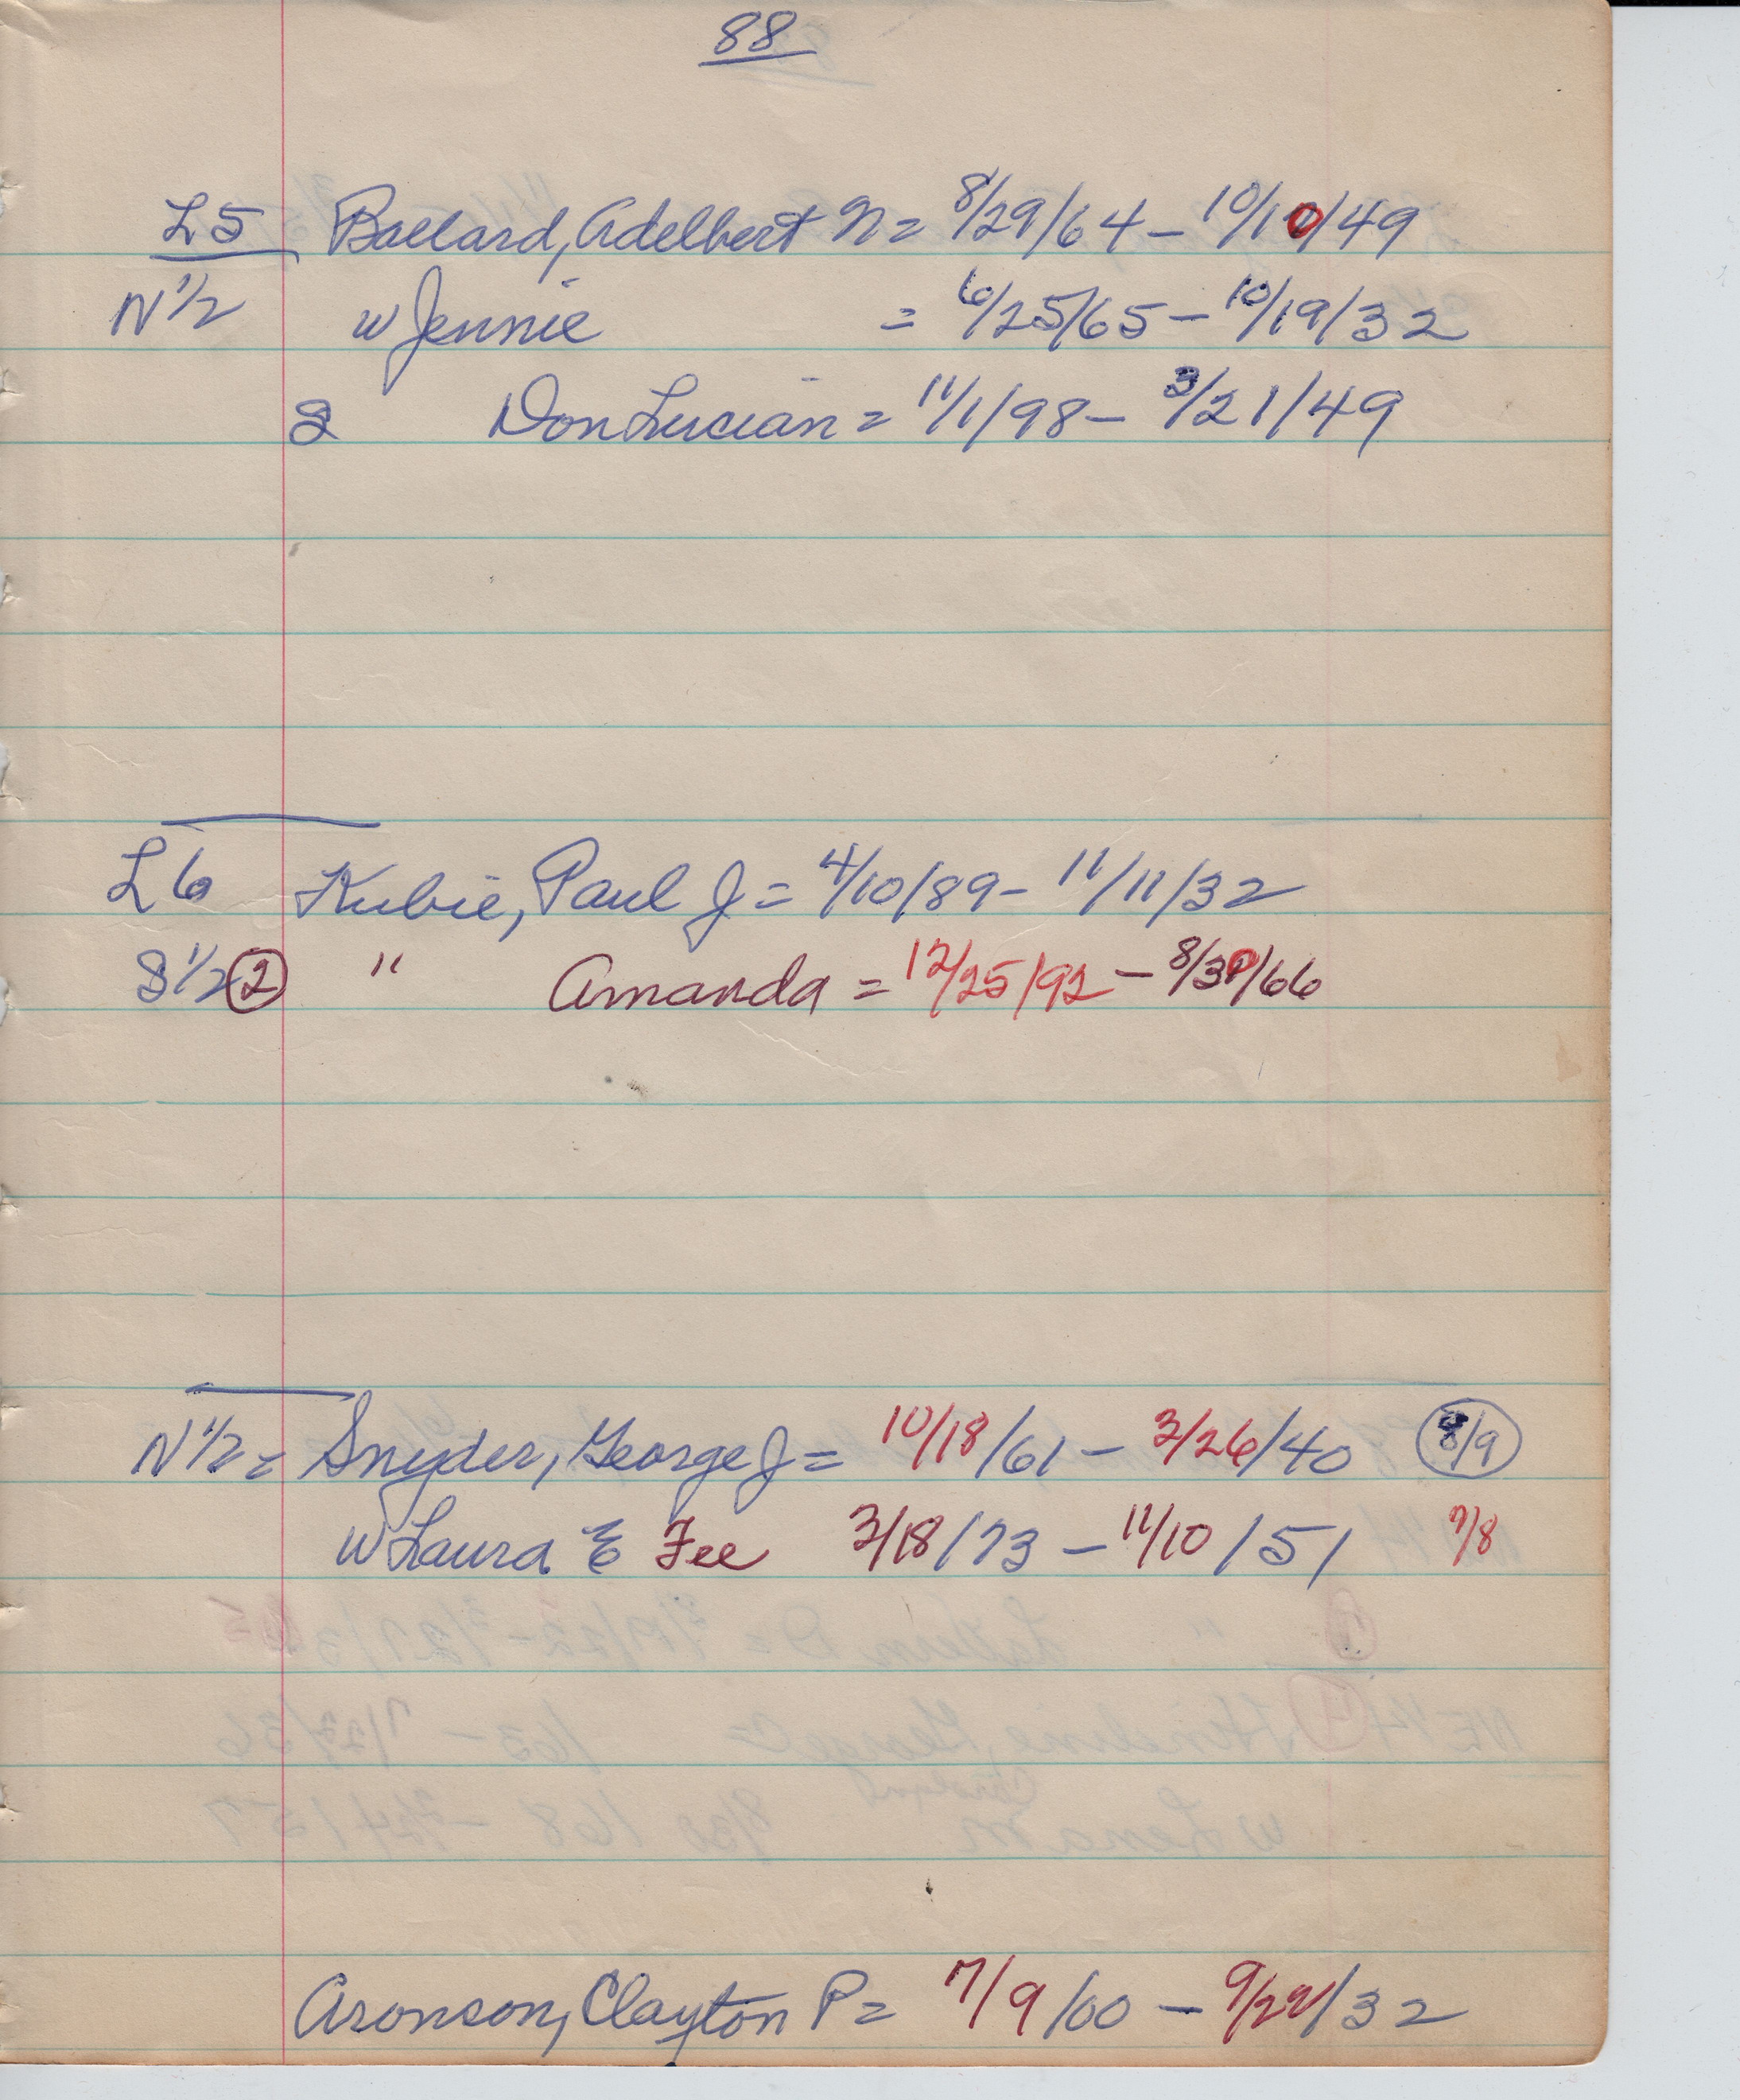 88
L5 Ballard, Adelbert N = 8/29/64 - 10/10/49
N 1/2 w Jennie = 6/25/65 - 10/19/32
S Don Lucian = 11/1/98 - 3/21/49
L6 Kubie, Paul J = 4/10/89 - 11/11/32
S 1/2 2 " Amanda = 12/25/92 - 8/30/66
N 1/2 = Snyder, George J = 10/18/61 - 3/26/40 8/9
w Laura E Fee 3/18/73 - 11/10/51 9/8
Aronson, Clayton P = 7/9/00 - /32